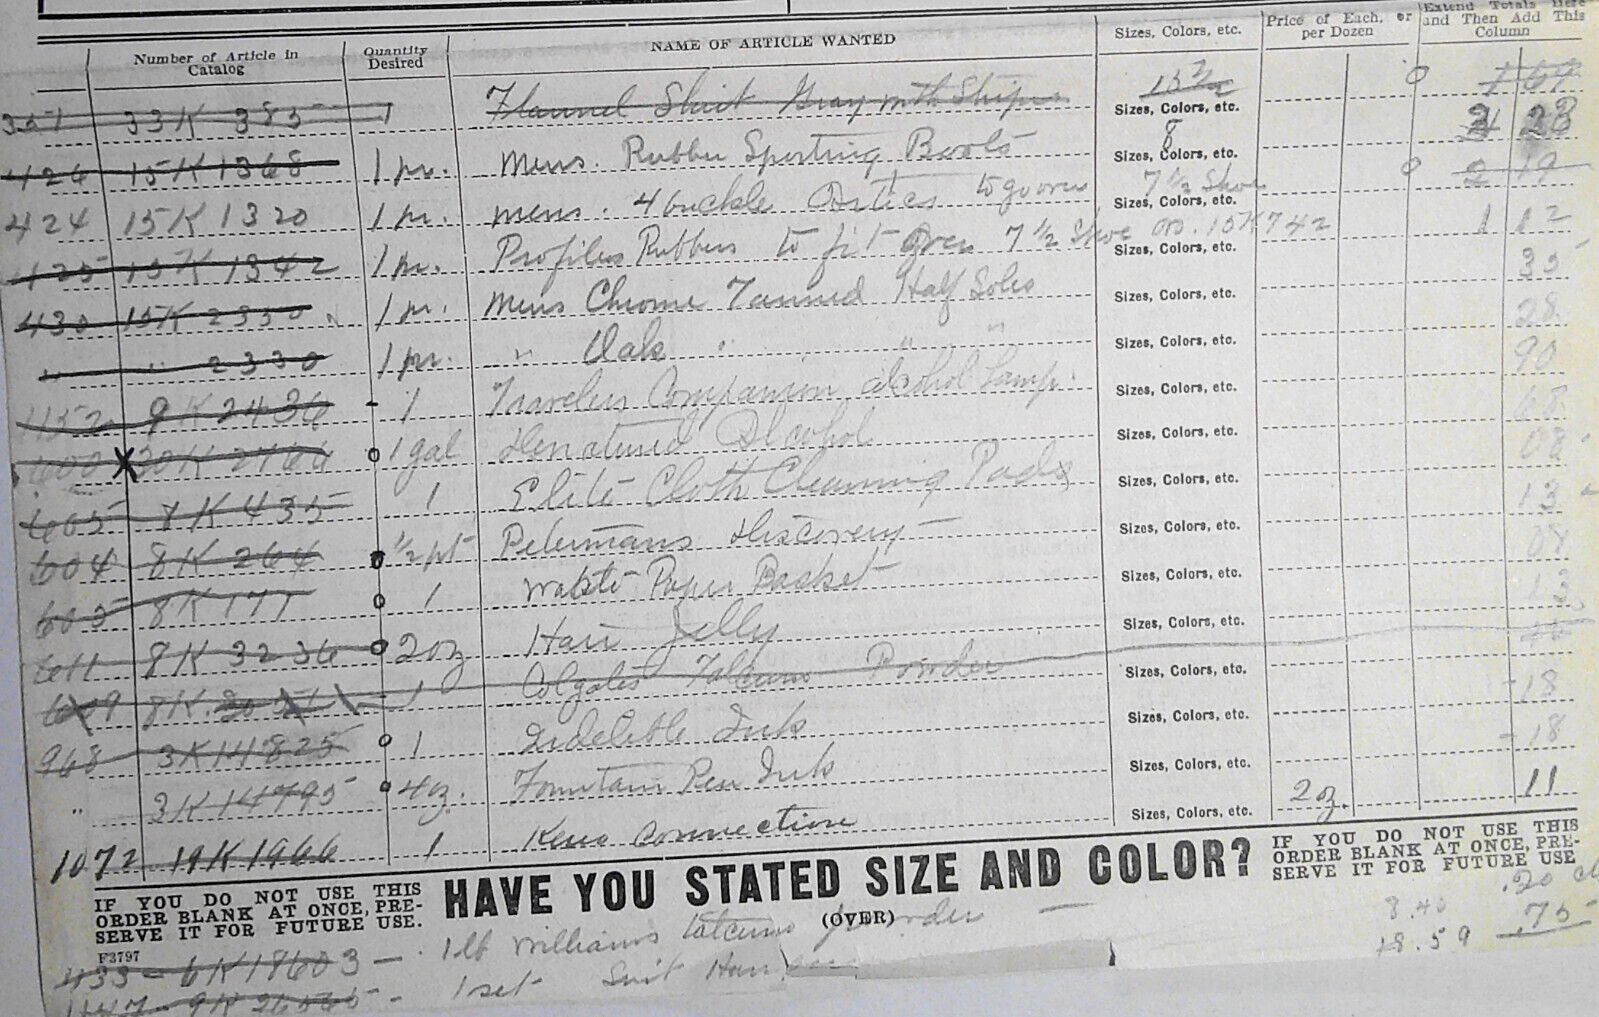 Number of Article in Catalog Quantity Desired NAME OF ARTICLE WANTED Sizes, Colors, etc. Price of Each, or per Dozen Extend Totals Here and Then Add This Column
33K 385 1 Flannel Shirt Gray with Stripes 15½ 1 69
Sizes, Colors, etc.
426 15K1368 1 pr. Mens. Rubber Sporting Boots 8
Sizes, Colors, etc.
424 15K1320 1 pr. mens. 4 buckle Artics to go over 7½ Shoe 2 19
Sizes, Colors, etc.
425 15K1342 1 pr. Profiles Rubbers to fit over 7½ Shoe or. 15K742 1 12
Sizes, Colors, etc.
430 15K2330 1 pr. Mens Chrome Tanned Half Soles 35
Sizes, Colors, etc.
" " 2330 1 pr. " Oak " " 28
Sizes, Colors, etc.
1152 9K2436 - 1 Travelers Companion alcohol Lamp. 90
Sizes, Colors, etc.
600 X 30K 2466 1 gal Denatured Alcohol 68
Sizes, Colors, etc.
605 8K435 1 Elite Cloth Cleaning Pads 08
Sizes, Colors, etc.
604 8K264 ½ pt Petermans Discovery 13
Sizes, Colors, etc.
603 8K177 1 Waste Paper Basket
Sizes, Colors, etc.
611 8K3236 2oz Hair Jelly 13
Sizes, Colors, etc.
609 8K 1 Colgates Talcum Powder
Sizes, Colors, etc.
968 3K14825 1 Indelible Ink 18
Sizes, Colors, etc.
" 3K14795 4oz. Fountain Pen Ink 18
Sizes, Colors, etc.
1072 19K1966 1 Keno Connection 2oz. 11
Sizes, Colors, etc.
IF YOU DO NOT USE THIS ORDER BLANK AT ONCE, PRE-SERVE IT FOR FUTURE USE.
HAVE YOU STATED SIZE AND COLOR?
(OVER)
IF YOU DO NOT USE THIS ORDER BLANK AT ONCE, PRE-SERVE IT FOR FUTURE USE
F3797
433 - 6K18603 - 1 lb Williams talcum powder -
8.40 .20
18.59 .75
1147 - 9K26565 - 1 set Suit